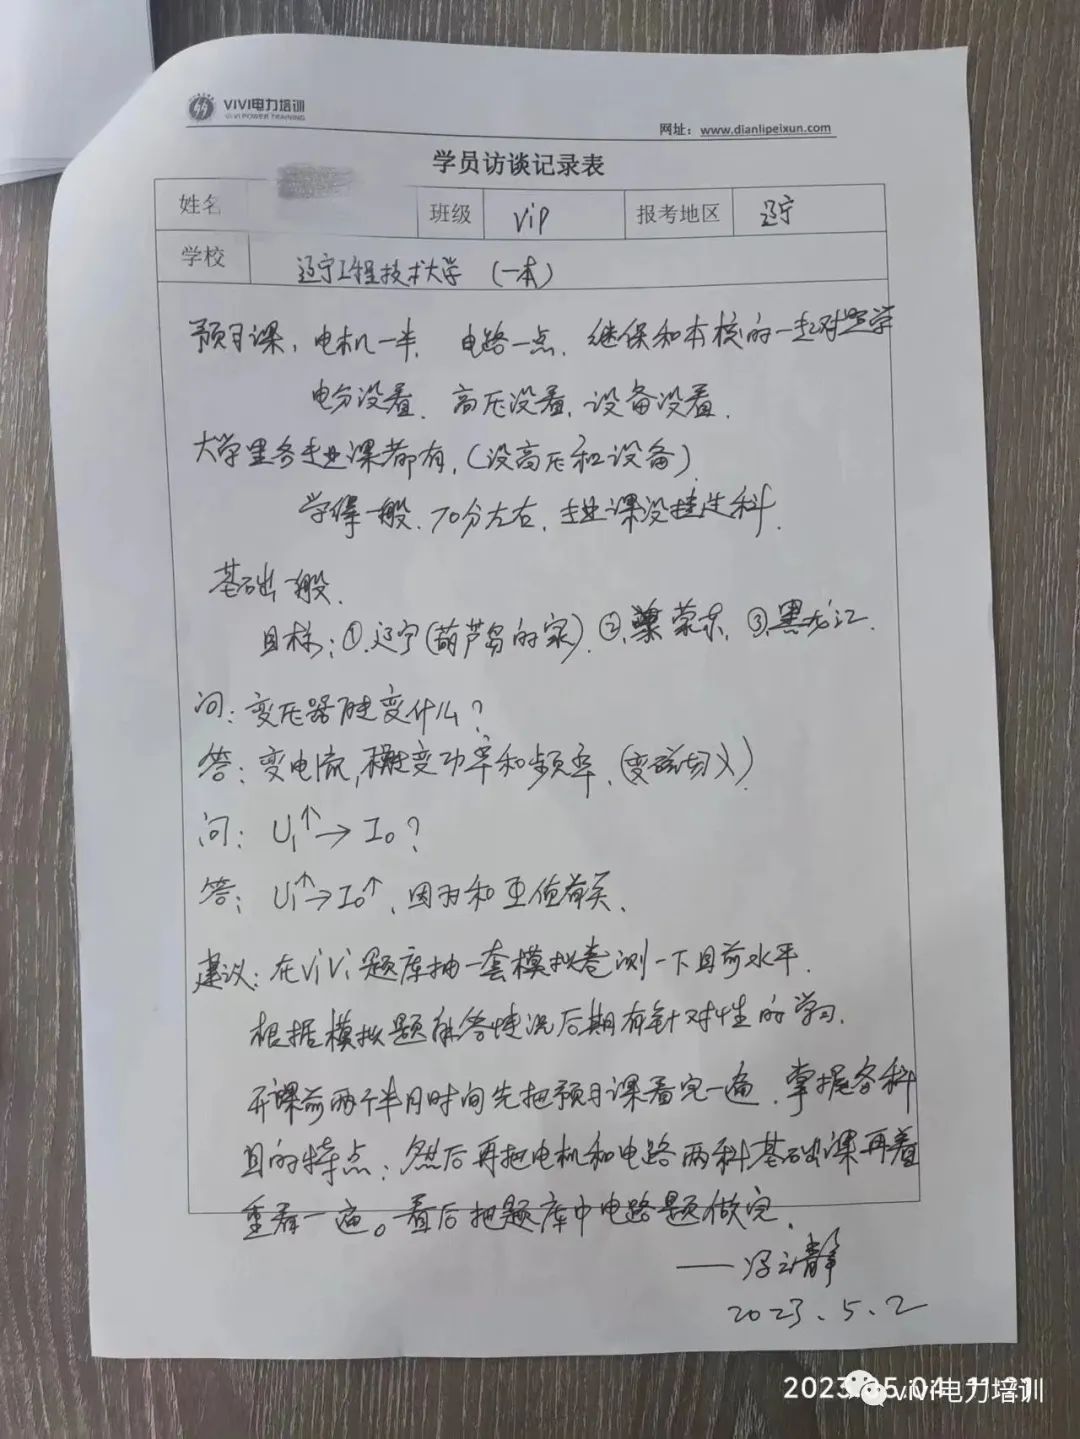 ViVi电力培训
VIVI POWER TRAINING
网址：www.dianlipeixun.com
学员访谈记录表
姓名 班级 Vip 报考地区 辽宁
学校 辽宁工程技术大学 (一本)
预习课、电机一半、电路一点、继保和本校的一起对照学
电分没看、高压没看、设备没看.
大学里各专业课都有,(没高压和设备)
学得一般、70分左右、专业课没挂过科.
基础一般.
目标:①.辽宁(葫芦岛的家).②.蒙东,③.黑龙江.
问:变压器能变什么?
答:变电流,不能变功率和频率.(变磁场×)
问: U₁↑→I₀?
答: U₁↑→I₀↑、因为和 值有关.
建议:在ViVi题库抽一套模拟卷测一下目前水平.
根据模拟题解答情况后期有针对性的学习.
开课前两个半月时间先把预习课看完一遍.掌握各科
目的特点;然后再把电机和电路两科基础课再着
重看一遍。看后把题库中电路题做完.
——冯 静
2023.5.2
2023.05.04 11:21
vivi电力培训